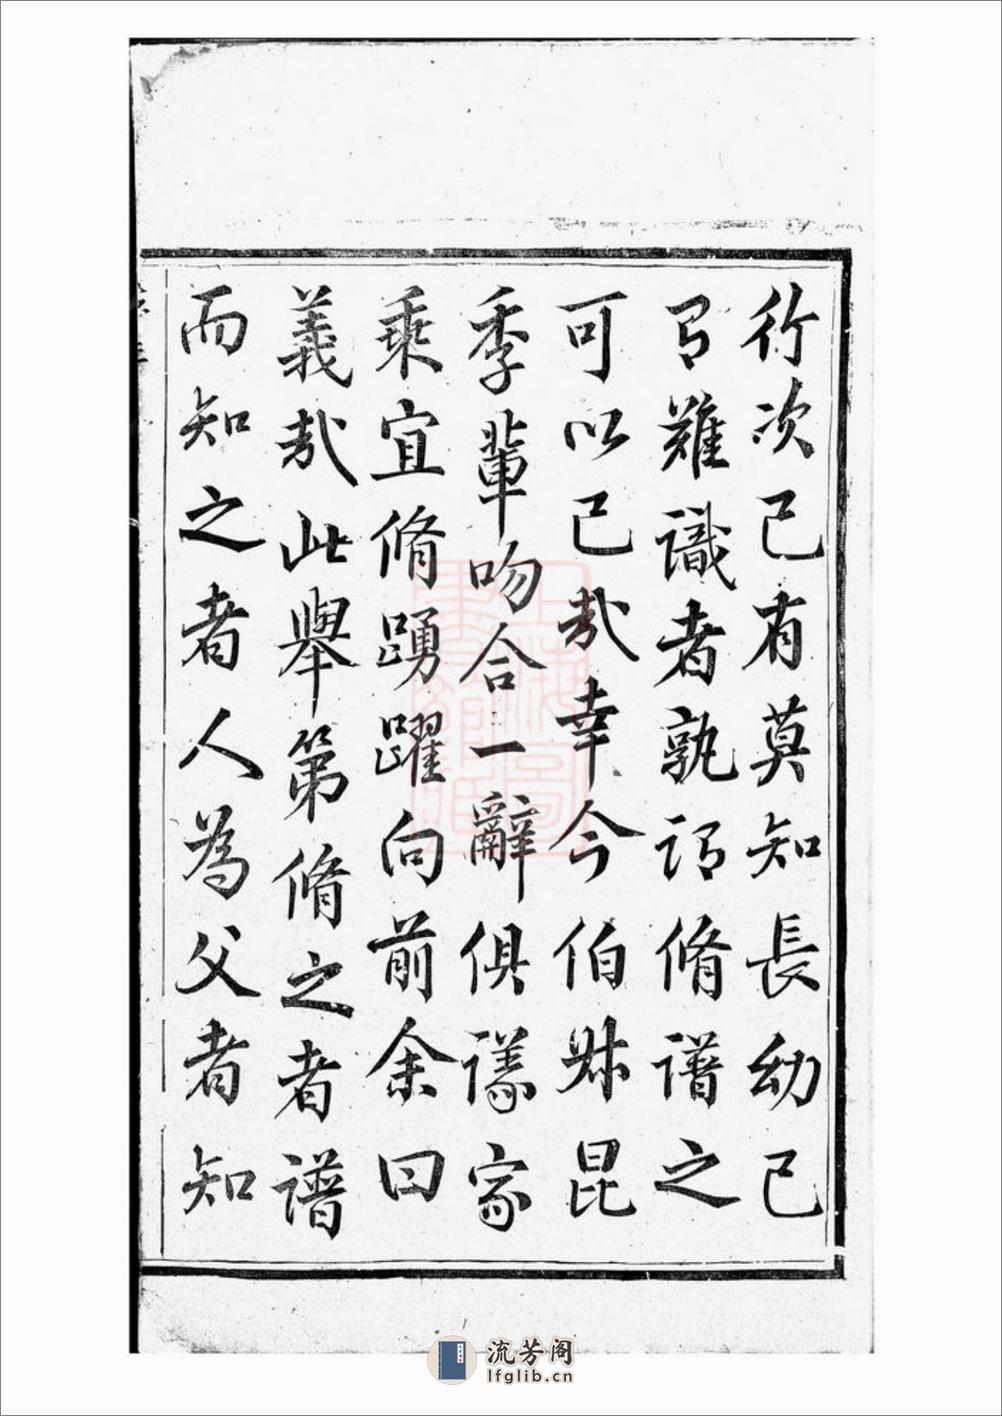 行次已有莫知長幼已
有難識者孰謂脩譜之
可以已哉幸今伯叔昆
季輩吻合一辭俱議家
乘宜脩踴躍向前余曰
義哉此舉第脩之者譜
而知之者人為父者知
流芳阁
lfglib.cn